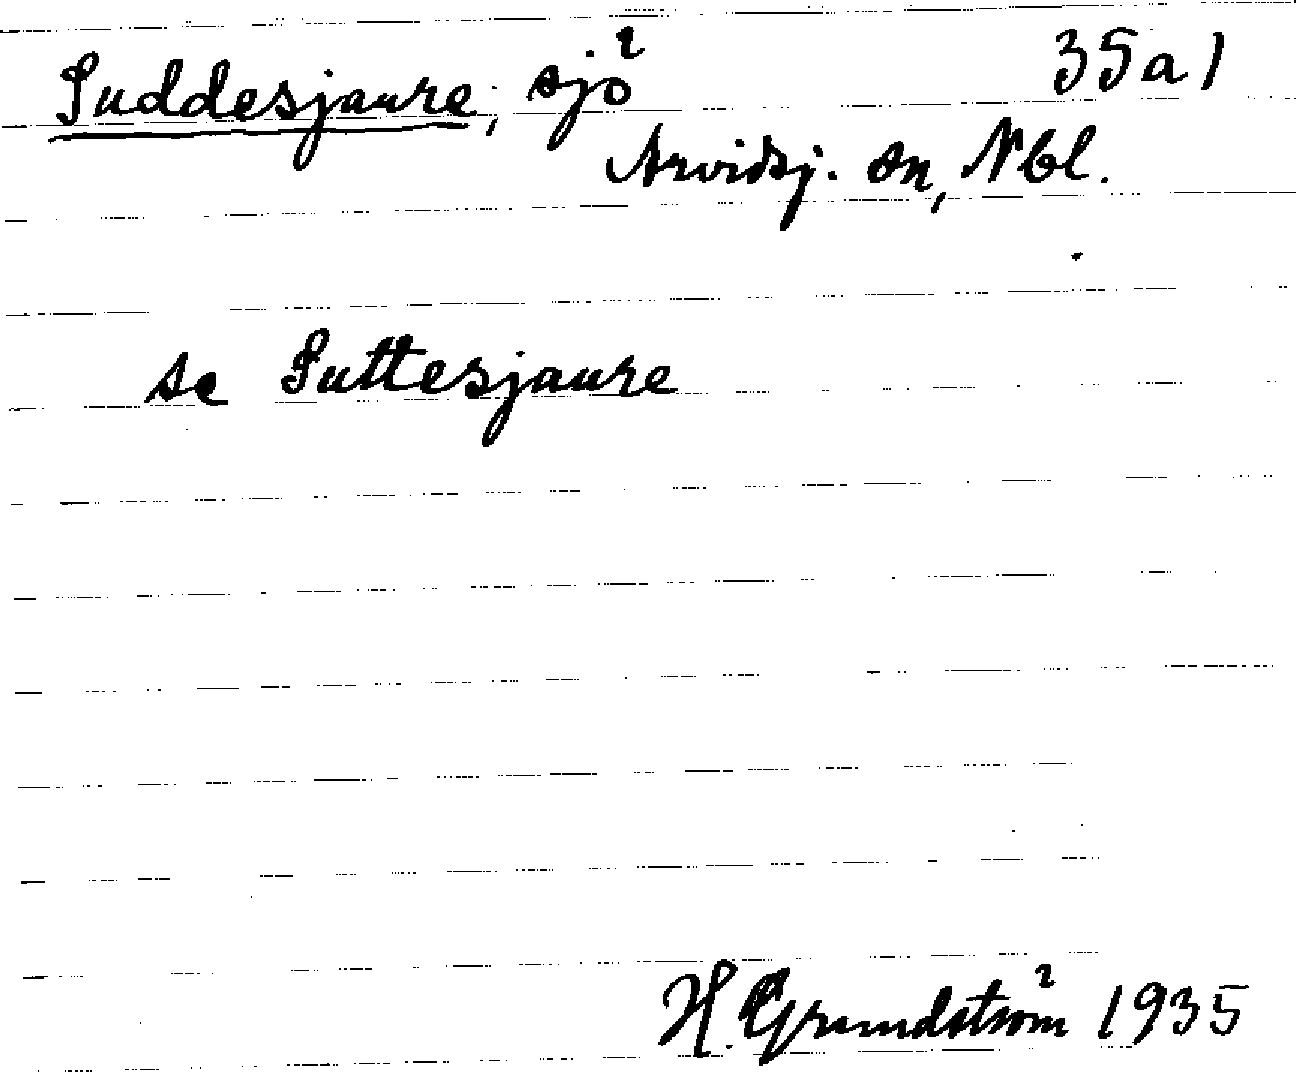 Suddesjaure, sjö
35a1
Arvidsj. sn, Nbl.
se Suttesjaure
H. Grundström 1935